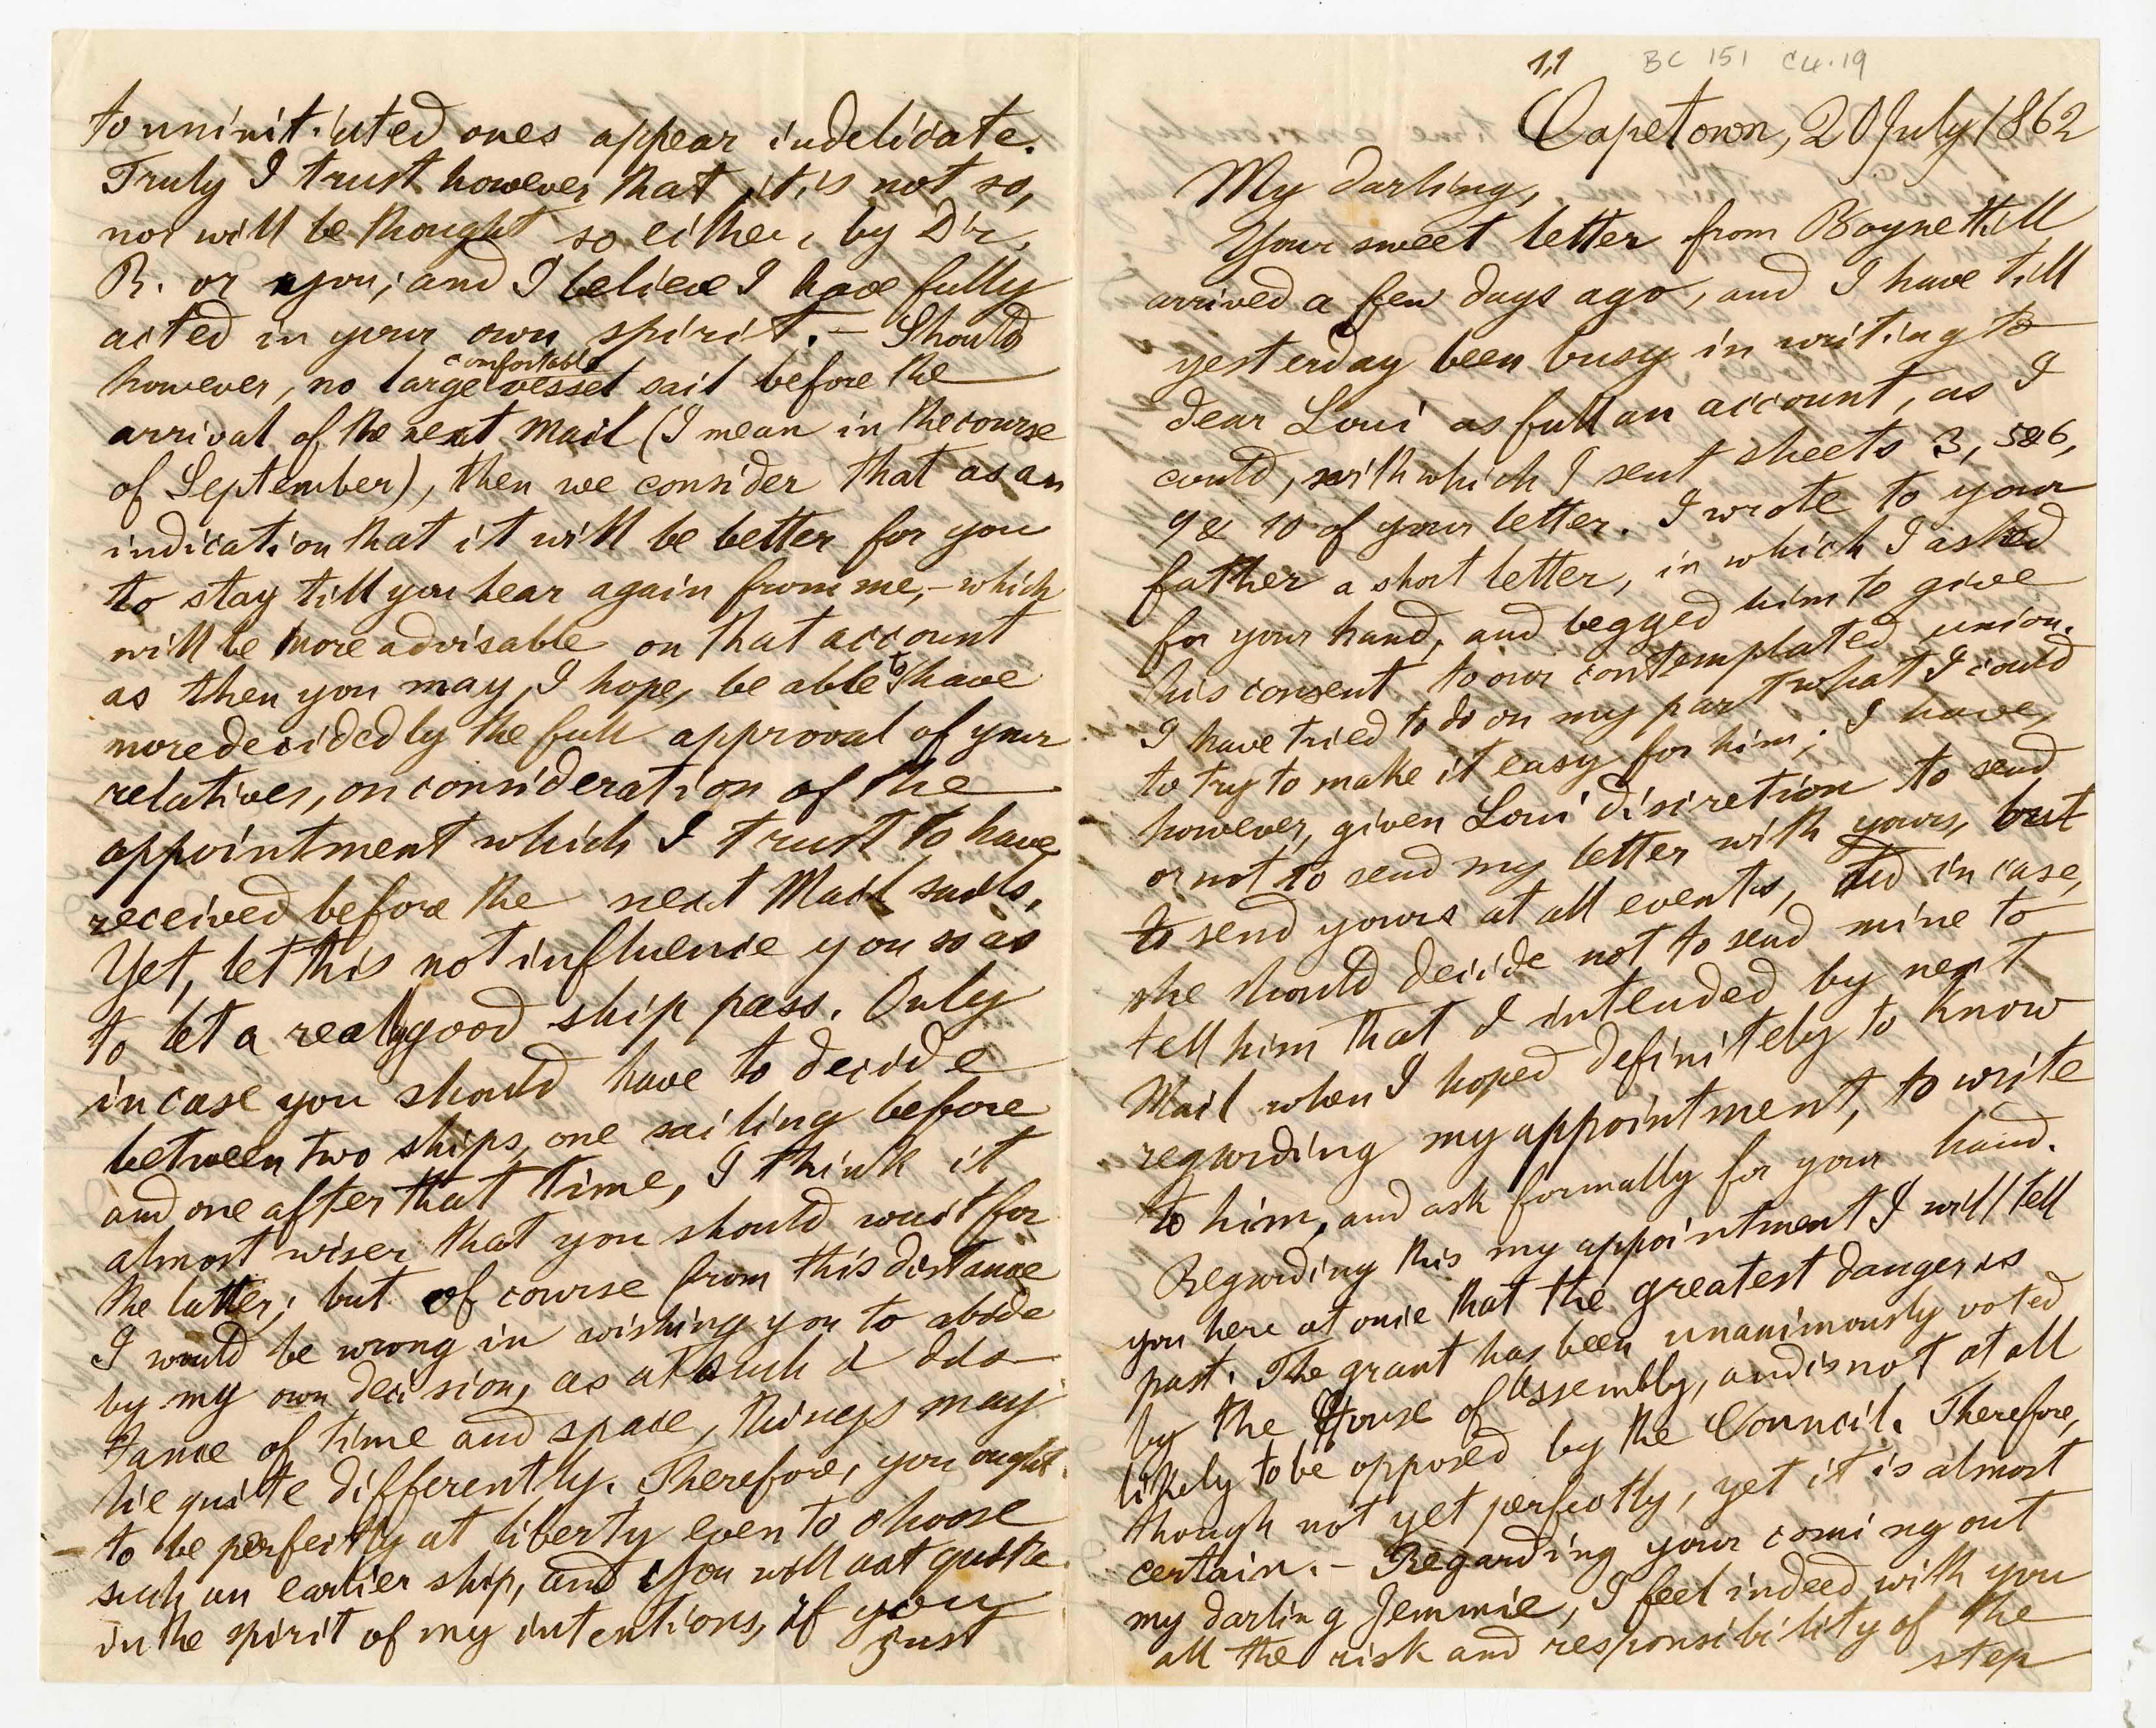 1,1
BC 151 C4.19
Capetown, 20 July 1862
My darling,
Your sweet letter from Boyne Hill
arrived a few days ago, and I have till
yesterday been busy in writing to
dear Loui as full an account, as I
could, with which I sent sheets 3, 5&6,
9 & 10 of your letter. I wrote to your
father a short letter, in which I asked
for your hand, and begged him to give
his consent to our contemplated union.
I have tried to do on my part what I could
to try to make it easy for him; I have,
however, given Loui discretion to send
or not to send my letter with yours, but
to send yours at all events, and in case,
she should decide not to send mine to
tell him that I intended by next
Mail when I hoped definitely to know
regarding my appointment, to write
to him, and ask formally for your hand.
Regarding this my appointment I will tell
you here at once that the greatest danger is
past. The grant has been unanimously voted
by the House of Assembly, and is not at all
likely to be opposed by the Council. Therefore,
though not yet perfectly, yet it is almost
certain. – Regarding your coming out
my darling Jemmie, I feel indeed with you
all the risk and responsibility of the
step
to uninitiated ones appear indelicate.
Truly I trust however that it is not so,
nor will be thought so either, by Dr.
R. or you; and I believe I have fully
acted in your own spirit. – Should
however, no large comfortable vessel sail before the
arrival of the next Mail (I mean in the course
of September), then we consider that as an
indication that it will be better for you
to stay till you hear again from me, – which
will be more advisable on that account
as then you may, I hope, be able to have
more decidedly the full approval of your
relatives, on consideration of the
appointment which I trust to have
received before the next Mail sails.
Yet, let this not influence you so as
to let a really good ship pass. Only
in case you should have to decide
between two ships, one sailing before
and one after that time, I think it
almost wiser that you should wait for
the latter; but of course from this distance
I would be wrong in wishing you to abide
by my own decision, as at such a dis-
tance of time and space, things may
lie quite differently. Therefore, you ought
to be perfectly at liberty even to choose
such an earlier ship, and you will act quite
in the spirit of my intentions, if you
just